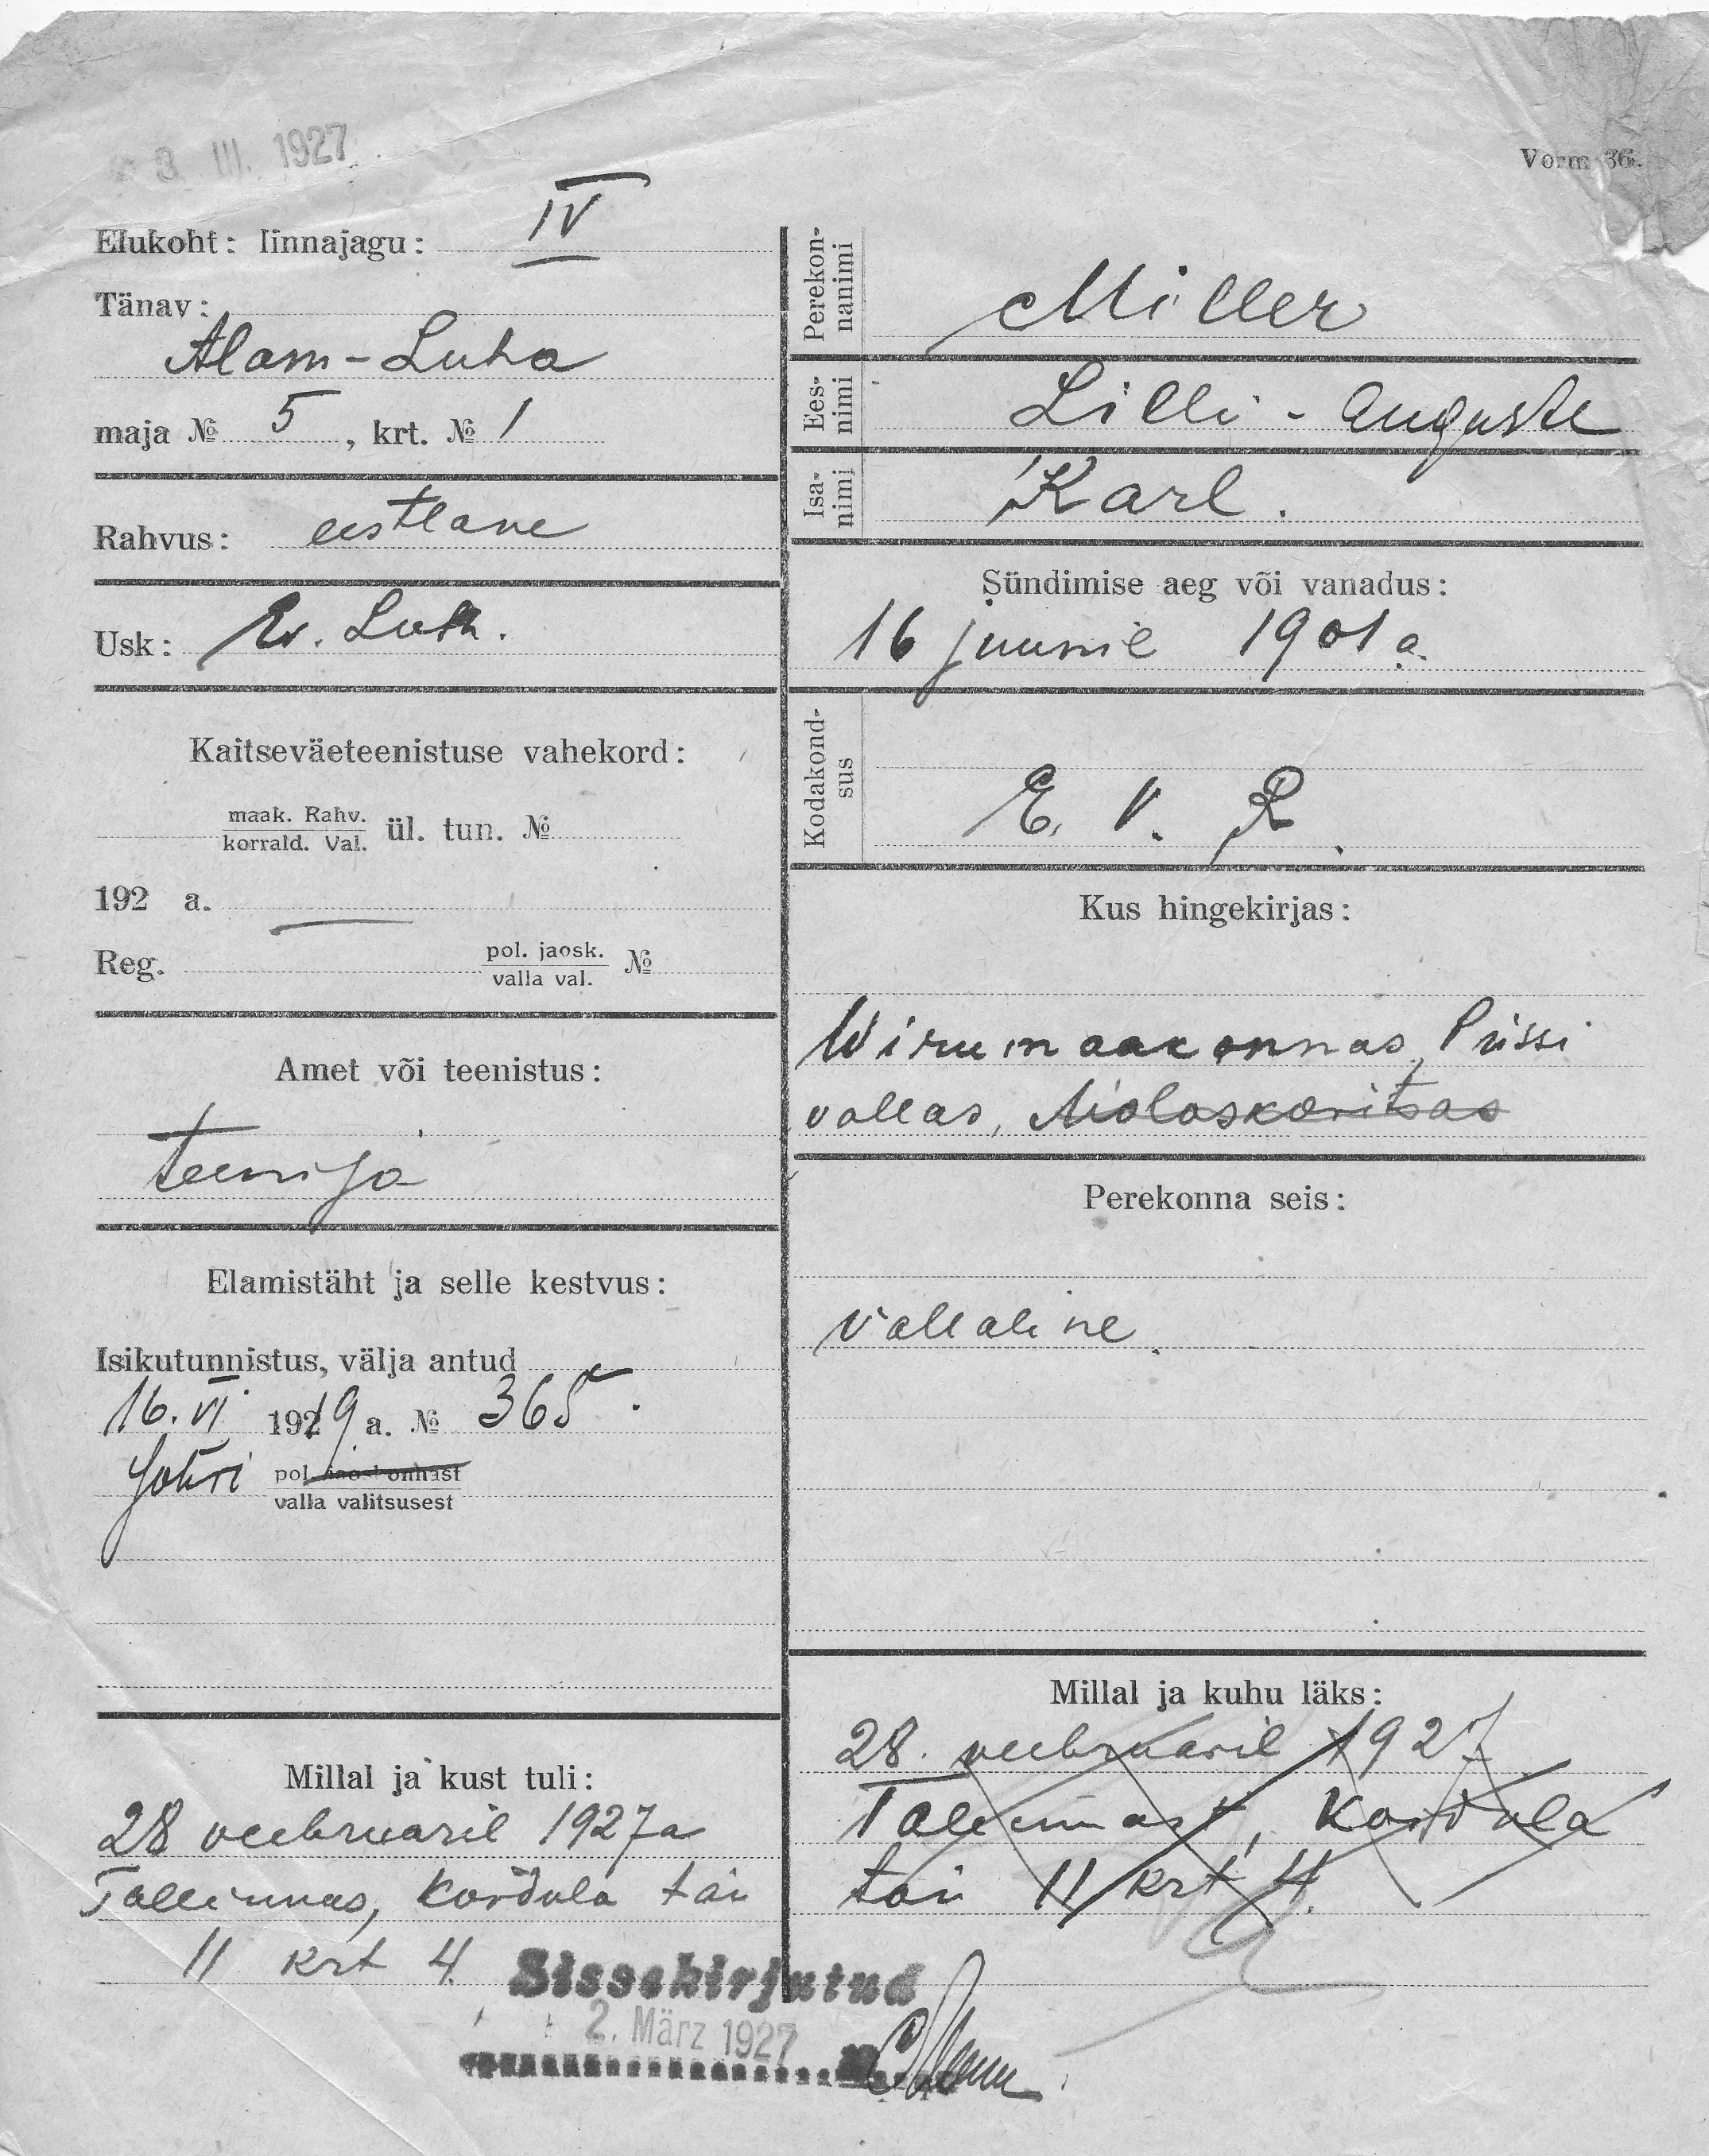 3. III. 1927
Vorm 36.
Elukoht: linnajagu: IV
Tänav:
Alam-Luha
maja № 5, krt. № 1
Rahvus: eestlane
Usk: Ev. Luth.
Kaitseväeteenistuse vahekord:
maak. Rahv.
korrald. Val. ül. tun. №
192 a.
Reg. pol. jaosk.
valla val. №
Amet või teenistus:
Teenija
Elamistäht ja selle kestvus:
Isikutunnistus, välja antud
16. VI 1919 a. № 365.
Jõhvi pol. jaoskonnast
valla valitsusest
Millal ja kust tuli:
28 veebruaril 1927 a
Tallinnas, Kordula tän
11 krt 4.
Perekon-
nanimi
Miller
Ees-
nimi
Lilli - Auguste
Isa-
nimi
Karl.
Sündimise aeg või vanadus:
16 juunil 1901 a.
Kodakond-
sus
E. V. R.
Kus hingekirjas:
Wirumaakonnas, Püssi
vallas,
Perekonna seis:
vallaline.
Millal ja kuhu läks:
28. veebruaril 1927
Tallinnast, Kordula
tän 11 krt 4.
Sissekirjutud
2. März 1927